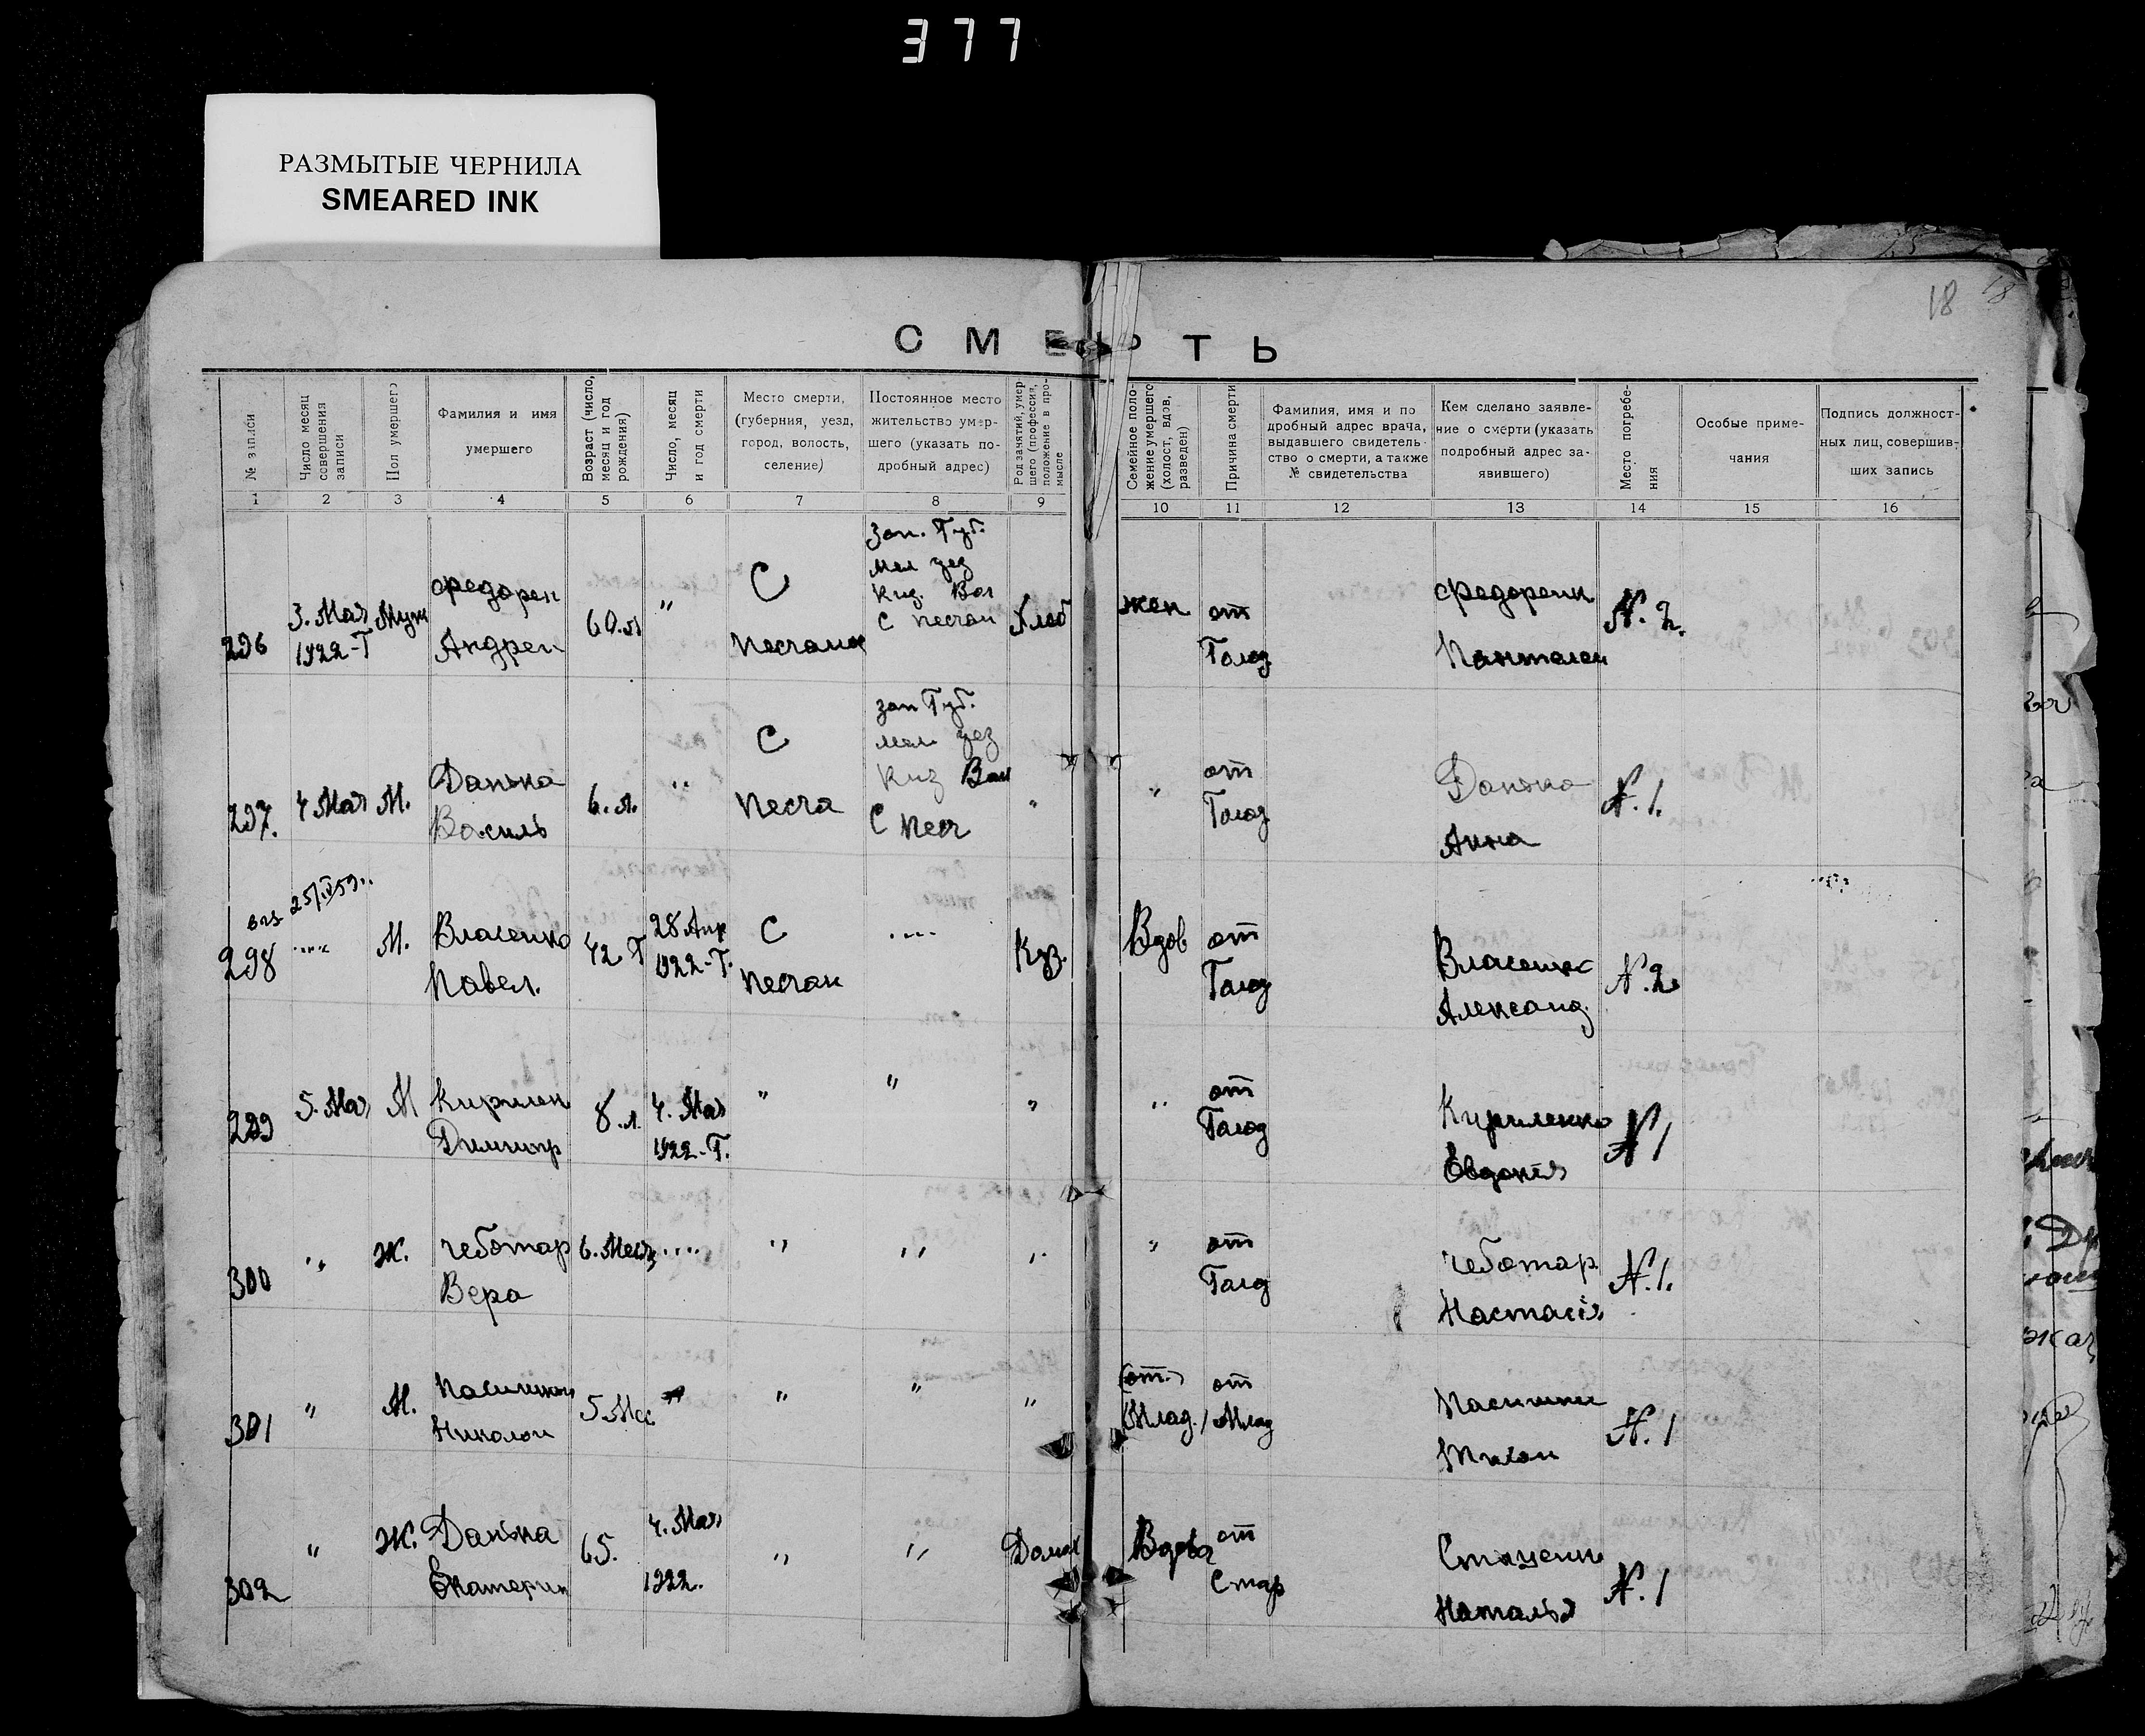 377
РАЗМЫТЫЕ ЧЕРНИЛА
SMEARED INK
18
СМЕРТЬ
№ записи
Число месяц совершения записи
Пол умершего
Фамилия и имя умершего
Возраст (число, месяц и год рождения)
Число, месяц и год смерти
Место смерти, (губерния, уезд, город, волость, селение)
Постоянное место жительство умершего (указать подробный адрес)
Род занятий, умершего (профессия, положение в промысле
Семейное положение умершего (холост, вдов, разведен)
Причина смерти
Фамилия, имя и подробный адрес врача, выдавшего свидетельство о смерти, а также № свидетельства
Кем сделано заявление о смерти (указать подробный адрес заявившего)
Место погребения
Особые примечания
Подпись должностных лиц, совершивших запись
1 2 3 4 5 6 7 8 9 10 11 12 13 14 15 16
296 3. Мая 1922-Г Муж Федорен Андреи 60.л " С Песчаное Зап. Губ. Мел уез Киз. Вол С Песчан Хлеб жен от Голод Федоренк Пантелеи N. 2.
297. 4 Мая М. Данька Василь 6. л. " С Песча зап Губ. мел уез Киз Вол С Песч " " от Голод Данька Анна N. 1.
25/IV59
298 " М. Власенко Павел. 42 Г 28 Апр 1922-Г. С Песчан " Куз. Вдов от Голод Власенк Александ N. 2
299 5. Мая М Кирилен Димитр 8. л. 4. Мая 1922-Г. " " " " от Голод Кириленко Евдокія N 1
300 " Ж. Чеботар Вера 6. Меся " " " " " от Голод Чеботар Настасія N. 1.
301 " М. Николаи 5. Мес " " " " (от. Млад.) от Млад N. 1
302 " Ж. Данька Екатерин 65. 4. Мая 1922. " " Домах Вдова от Стар Стаценк Наталья N. 1